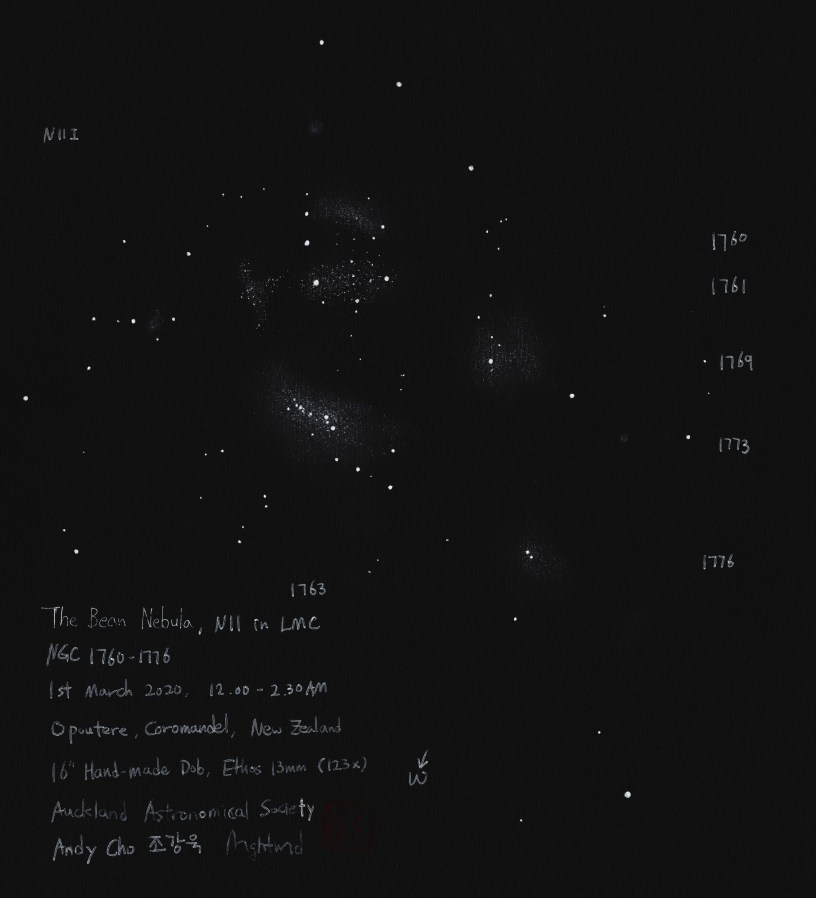 N11I
1760
1761
1769
1773
1776
1763
The Bean Nebula, N11 in LMC
NGC 1760-1776
1st March 2020, 12.00 - 2.30AM
Oputere, Coromandel, New Zealand
16" Hand-made Dob, Ethos 13mm (123x)
W
Auckland Astronomical Society
Andy Cho 조강욱 Nightwid